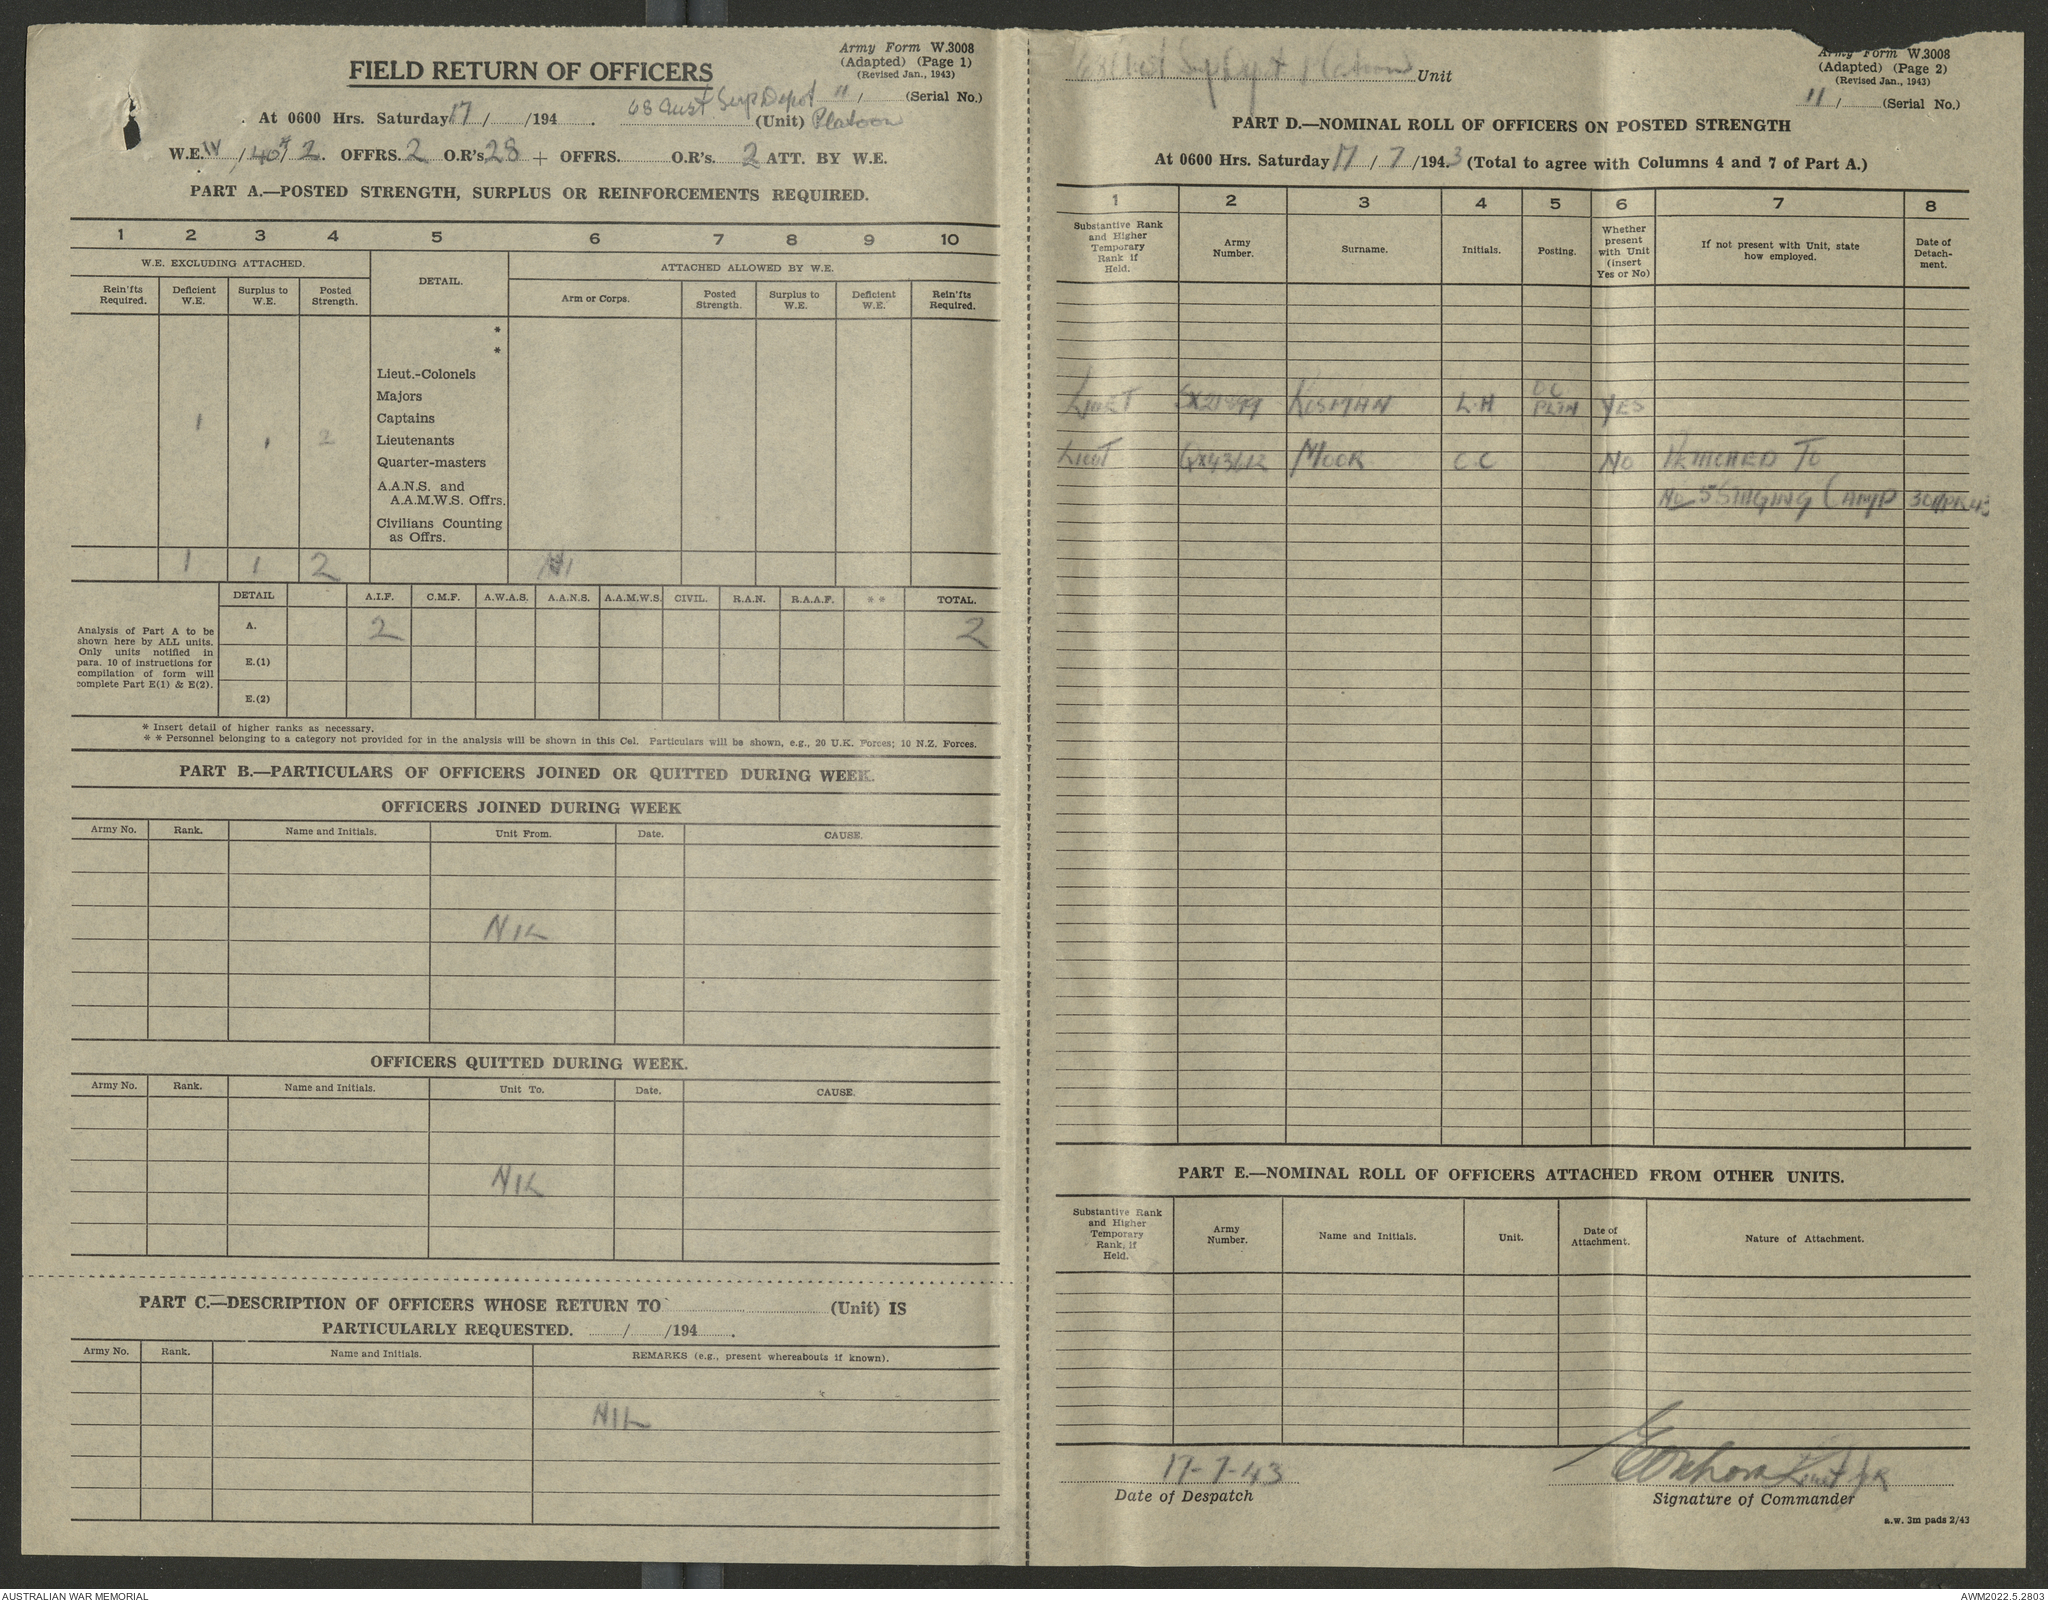 Army Form W.3008
(Adapted) (Page 1)
(Revised Jan., 1943)
FIELD RETURN OF OFFICERS
11/ (Serial No.)
At 0600 Hrs. Saturday 17/ /194 . 68 Aust Sup Depot (Unit) Platoon
W.E. IV/40/2. OFFRS. 2 O.R's 28 + OFFRS. O.R's. 2 ATT. BY W.E.
PART A.—POSTED STRENGTH, SURPLUS OR REINFORCEMENTS REQUIRED.
1 2 3 4 5 6 7 8 9 10
W.E. EXCLUDING ATTACHED. DETAIL. ATTACHED ALLOWED BY W.E.
Rein'fts Required. Deficient W.E. Surplus to W.E. Posted Strength. Arm or Corps. Posted Strength. Surplus to W.E. Deficient W.E. Rein'fts Required.
*
*
Lieut.-Colonels
Majors
1 Captains
1 2 Lieutenants
Quarter-masters
A.A.N.S. and
A.A.M.W.S. Offrs.
Civilians Counting
as Offrs.
1 1 2 Nil
DETAIL A.I.F. C.M.F. A.W.A.S. A.A.N.S. A.A.M.W.S. CIVIL. R.A.N. R.A.A.F. * * TOTAL.
Analysis of Part A to be
shown here by ALL units.
Only units notified in
para. 10 of instructions for
compilation of form will
complete Part E(1) & E(2).
A. 2 2
E.(1)
E.(2)
* Insert detail of higher ranks as necessary.
* * Personnel belonging to a category not provided for in the analysis will be shown in this Col. Particulars will be shown, e.g., 20 U.K. Forces; 10 N.Z. Forces.
PART B.—PARTICULARS OF OFFICERS JOINED OR QUITTED DURING WEEK.
OFFICERS JOINED DURING WEEK
Army No. Rank. Name and Initials. Unit From. Date. CAUSE.
NIL
OFFICERS QUITTED DURING WEEK.
Army No. Rank. Name and Initials. Unit To. Date. CAUSE.
NIL
PART C.—DESCRIPTION OF OFFICERS WHOSE RETURN TO (Unit) IS
PARTICULARLY REQUESTED. / /194 .
Army No. Rank. Name and Initials. REMARKS (e.g., present whereabouts if known).
NIL
Army Form W.3008
(Adapted) (Page 2)
(Revised Jan., 1943)
68 Aust Sup Depot Platoon Unit
11/ (Serial No.)
PART D.—NOMINAL ROLL OF OFFICERS ON POSTED STRENGTH
At 0600 Hrs. Saturday 17/7/1943 (Total to agree with Columns 4 and 7 of Part A.)
1 2 3 4 5 6 7 8
Substantive Rank and Higher Temporary Rank if Held. Army Number. Surname. Initials. Posting. Whether present with Unit (insert Yes or No) If not present with Unit, state how employed. Date of Detachment.
LIEUT SX21899 KOSMAN L.H OC PLTN YES
LIEUT QX43612 MOOR C.C NO DETACHED TO
No 5 STAGING CAMP 30 APR 43
PART E.—NOMINAL ROLL OF OFFICERS ATTACHED FROM OTHER UNITS.
Substantive Rank and Higher Temporary Rank, if Held. Army Number. Name and Initials. Unit. Date of Attachment. Nature of Attachment.
17-7-43
Date of Despatch
Signature of Commander
a.w. 3m pads 2/43
AUSTRALIAN WAR MEMORIAL
AWM2022.5.2803